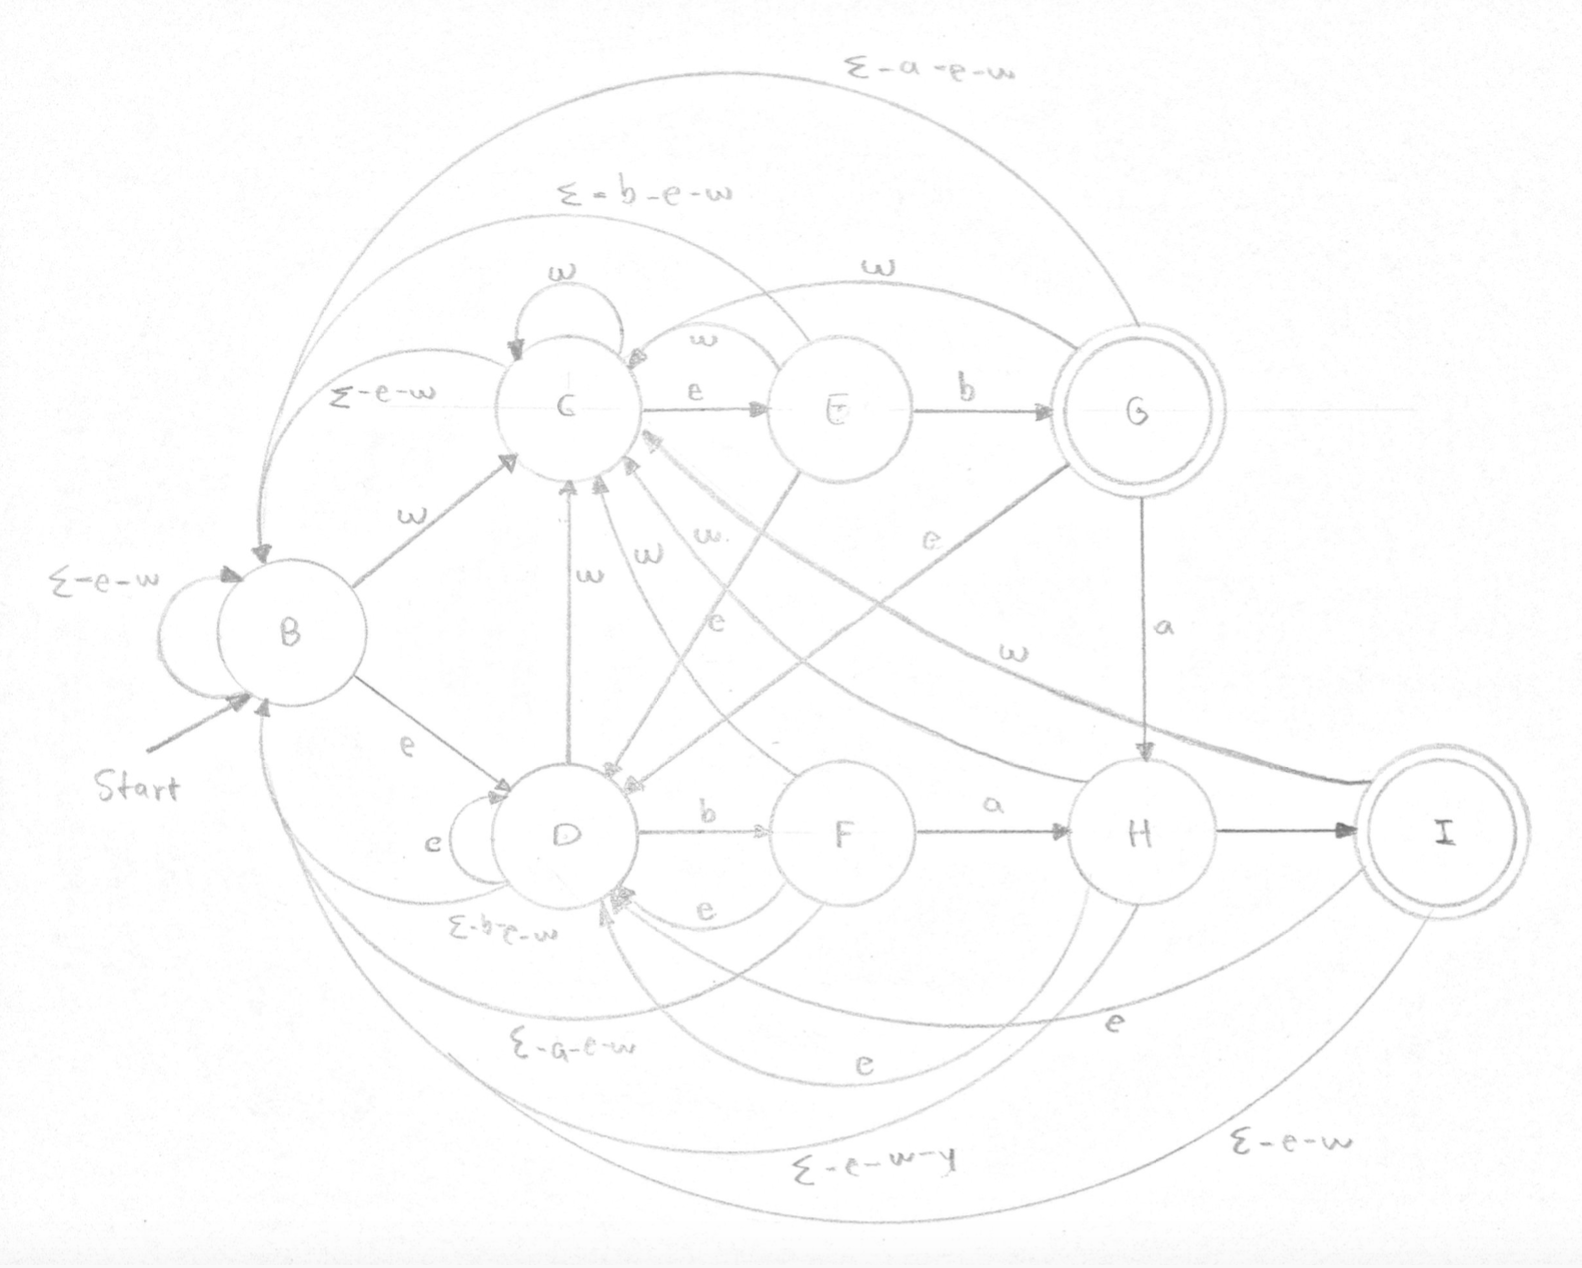 Σ-a-e-w
Σ-b-e-w
w
w
w
Σ-e-w
C
e
E
b
G
w
w
w
w
e
Σ-e-w
B
e
w
a
e
Start
e
D
b
F
a
H
I
e
Σ-b-e-w
e
Σ-a-e-w
e
Σ-e-w-y
Σ-e-w